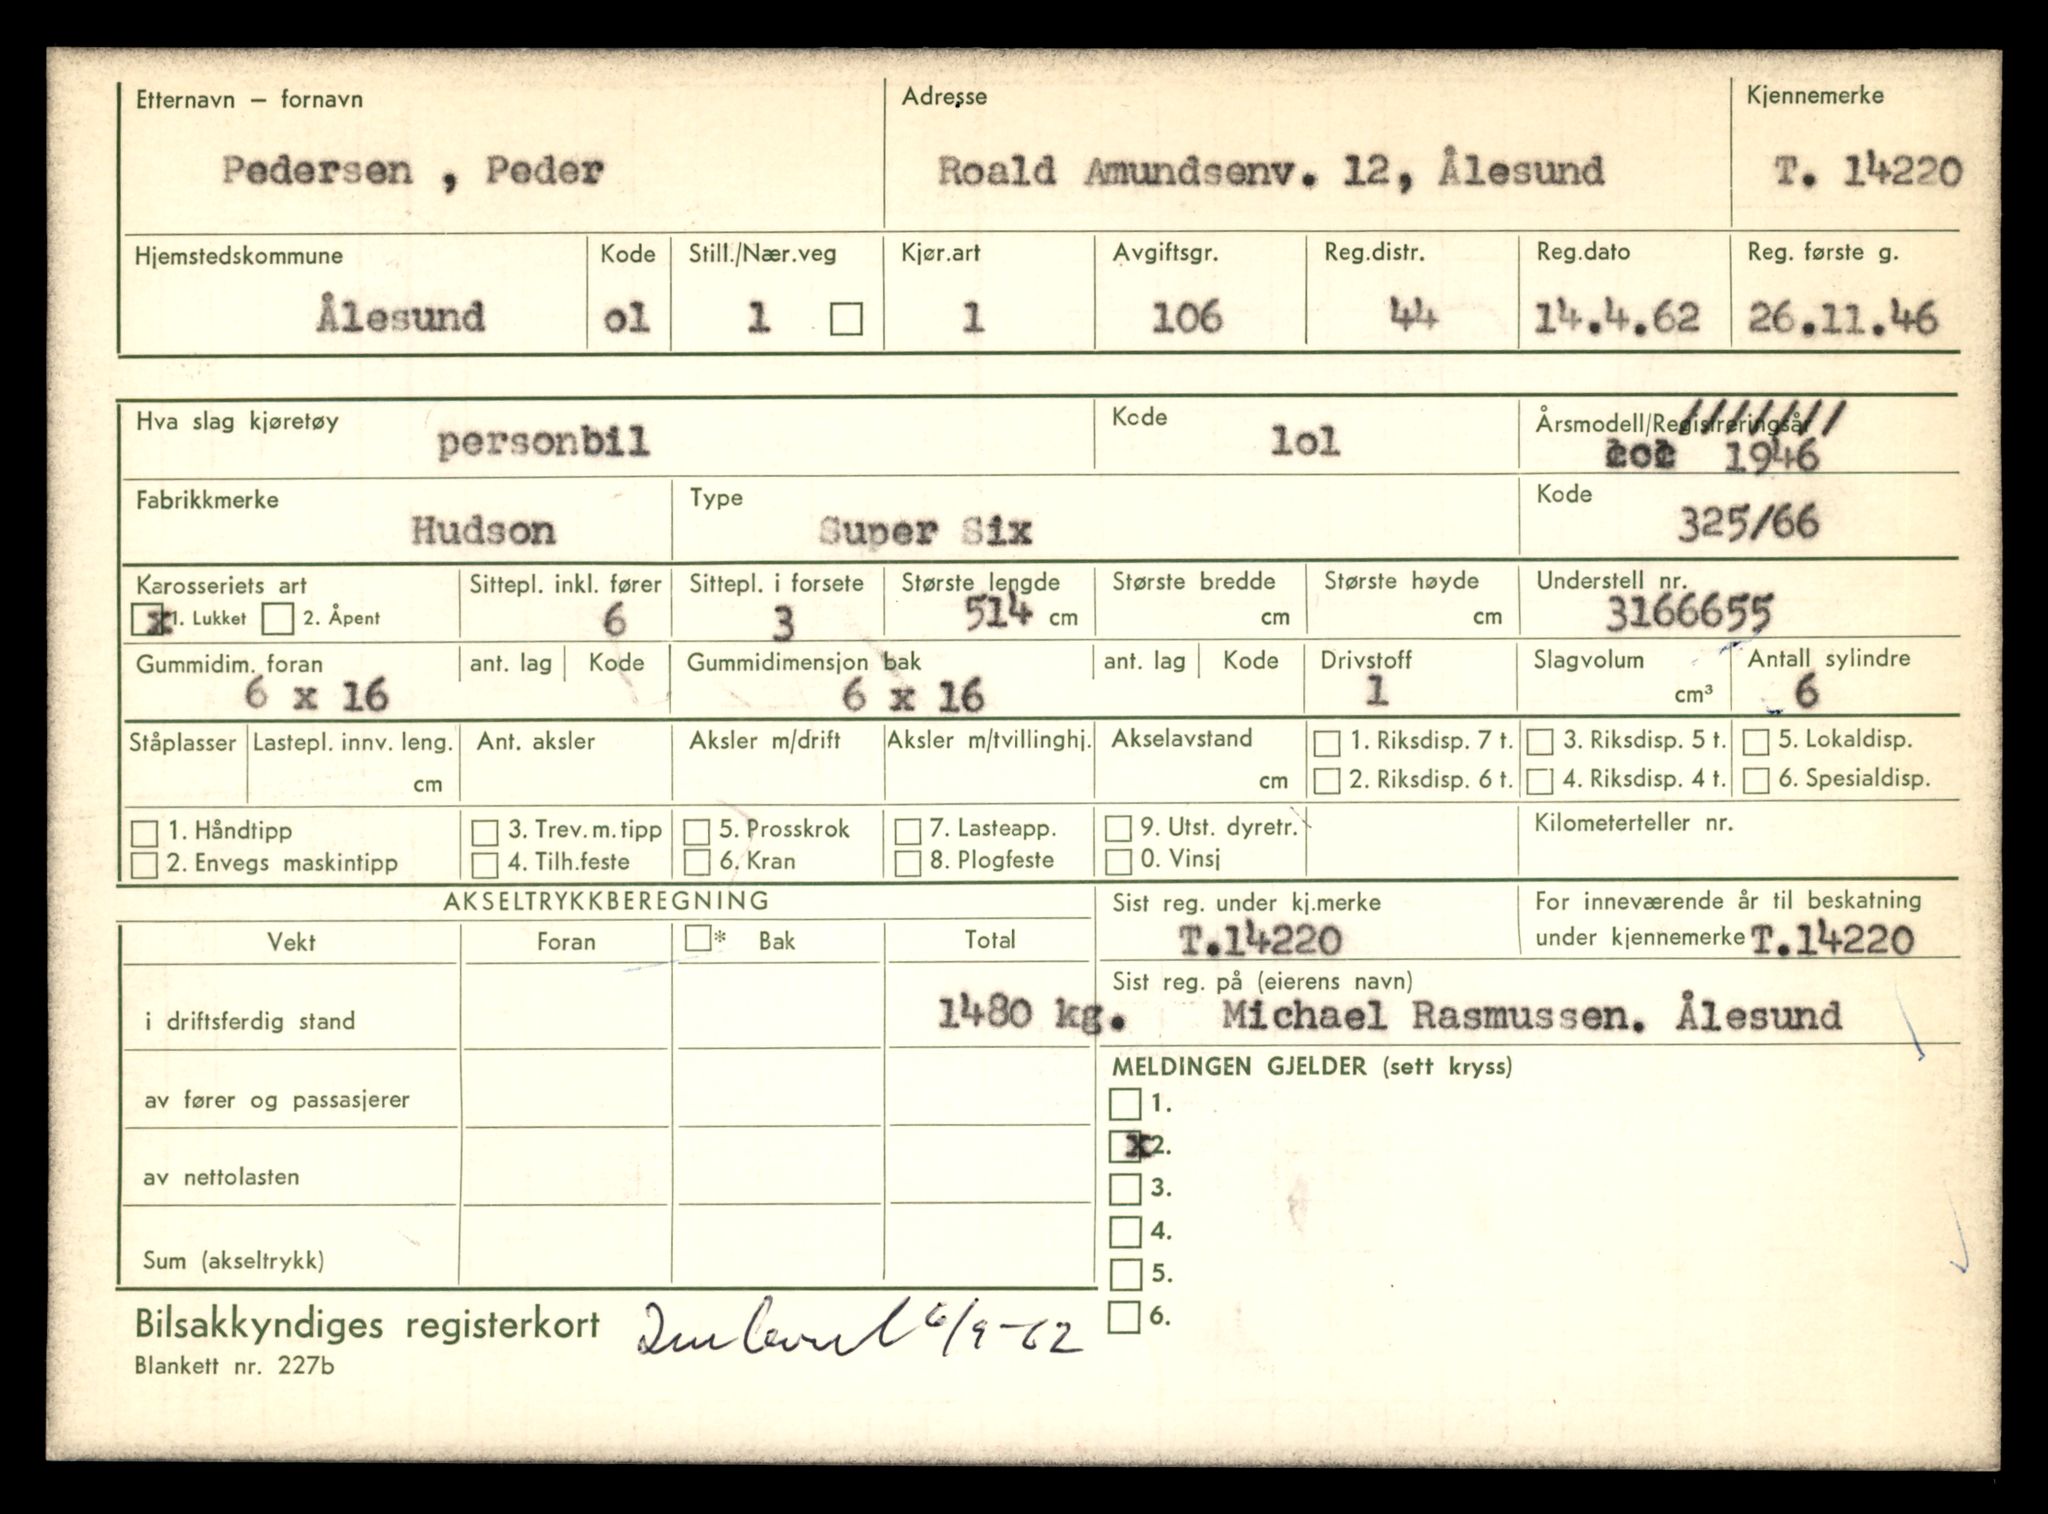 Etternavn – fornavn Adresse Kjennemerke
Pedersen , Peder Roald Amundsenv. 12, Ålesund T. 14220
Hjemstedskommune Kode Still./Nær.veg Kjør.art Avgiftsgr. Reg.distr. Reg.dato Reg. første g.
Ålesund o1 1 1 106 44 14.4.62 26.11.46
Hva slag kjøretøy Kode Årsmodell/Registreringsår
personbil lol 1946
Fabrikkmerke Type Kode
Hudson Super Six 325/66
Karosseriets art Sittepl. inkl. fører Sittepl. i forsete Største lengde Største bredde Største høyde Understell nr.
x 1. Lukket 2. Åpent 6 3 514 cm cm cm 3166655
Gummidim. foran ant. lag Kode Gummidimensjon bak ant. lag Kode Drivstoff Slagvolum Antall sylindre
6 x 16 6 x 16 1 cm³ 6
Ståplasser Lastepl. innv. leng. Ant. aksler Aksler m/drift Aksler m/tvillinghj. Akselavstand 1. Riksdisp. 7 t. 3. Riksdisp. 5 t. 5. Lokaldisp.
cm cm 2. Riksdisp. 6 t. 4. Riksdisp. 4 t. 6. Spesialdisp.
1. Håndtipp 3. Trev. m. tipp 5. Prosskrok 7. Lasteapp. 9. Utst. dyretr. Kilometerteller nr.
2. Envegs maskintipp 4. Tilh.feste 6. Kran 8. Plogfeste 0. Vinsj
AKSELTRYKKBEREGNING Sist reg. under kj.merke For inneværende år til beskatning
Vekt Foran * Bak Total T.14220 under kjennemerke T.14220
Sist reg. på (eierens navn)
i driftsferdig stand 1480 kg. Michael Rasmussen. Ålesund
MELDINGEN GJELDER (sett kryss)
av fører og passasjerer 1.
x 2.
av nettolasten 3.
4.
Sum (akseltrykk) 5.
Bilsakkyndiges registerkort 6/9-62 6.
Blankett nr. 227b